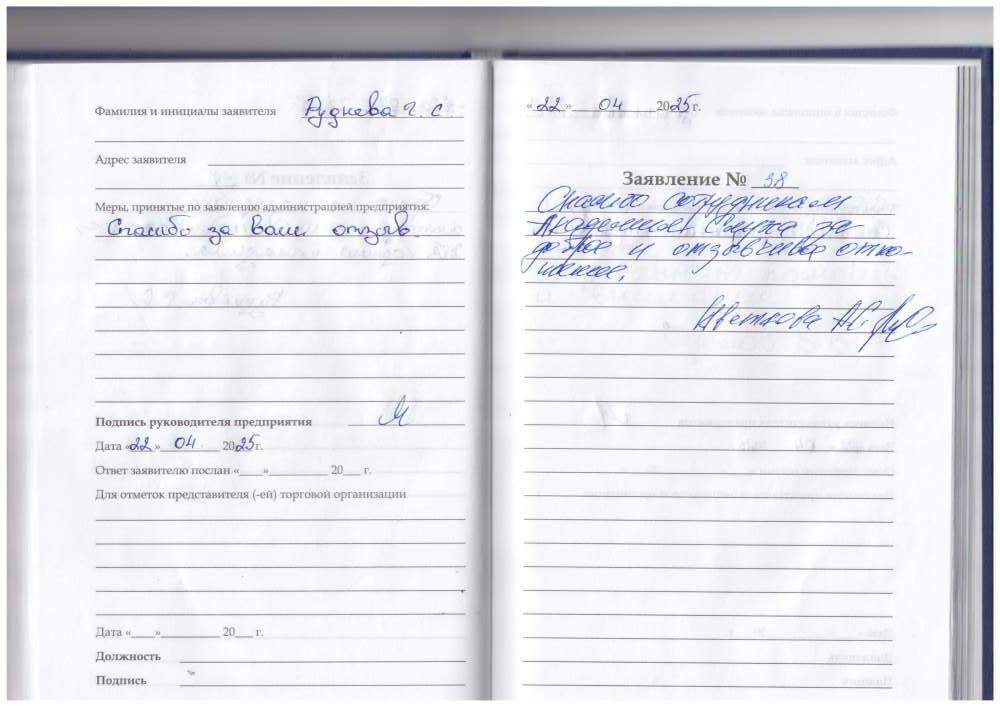 Фамилия и инициалы заявителя Руднева Г. С.
Адрес заявителя
Меры, принятые по заявлению администрацией предприятия:
Спасибо за ваш отзыв.
Подпись руководителя предприятия
Дата «22» 04 2025 г.
Ответ заявителю послан «____»__________ 20___ г.
Для отметок представителя (-ей) торговой организации
Дата «____»__________ 20___ г.
Должность
Подпись
«22» 04 2025 г.
Заявление № 38
Спасибо сотрудникам
Академии Слуха за
доброе и отзывчивое отно-
шение.
Цветкова